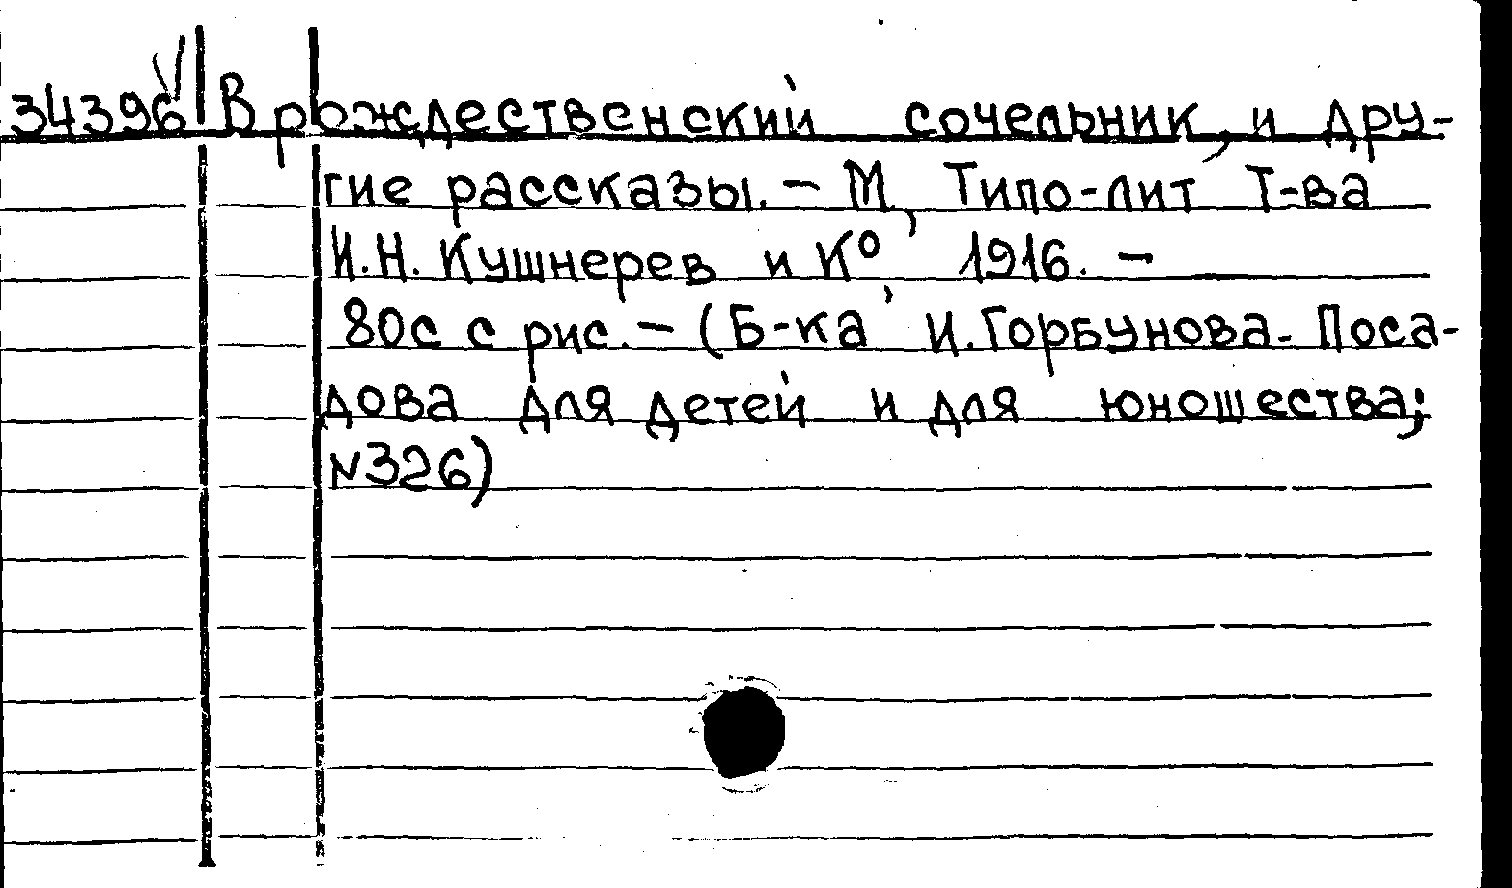 34396 В рождественский сочельник, и дру-
гие рассказы. - М, Типо-лит Т-ва
И.Н. Кушнерев и К°, 1916. -
80с с рис. - (Б-ка И. Горбунова-Поса-
дова для детей и для юношества;
N326)